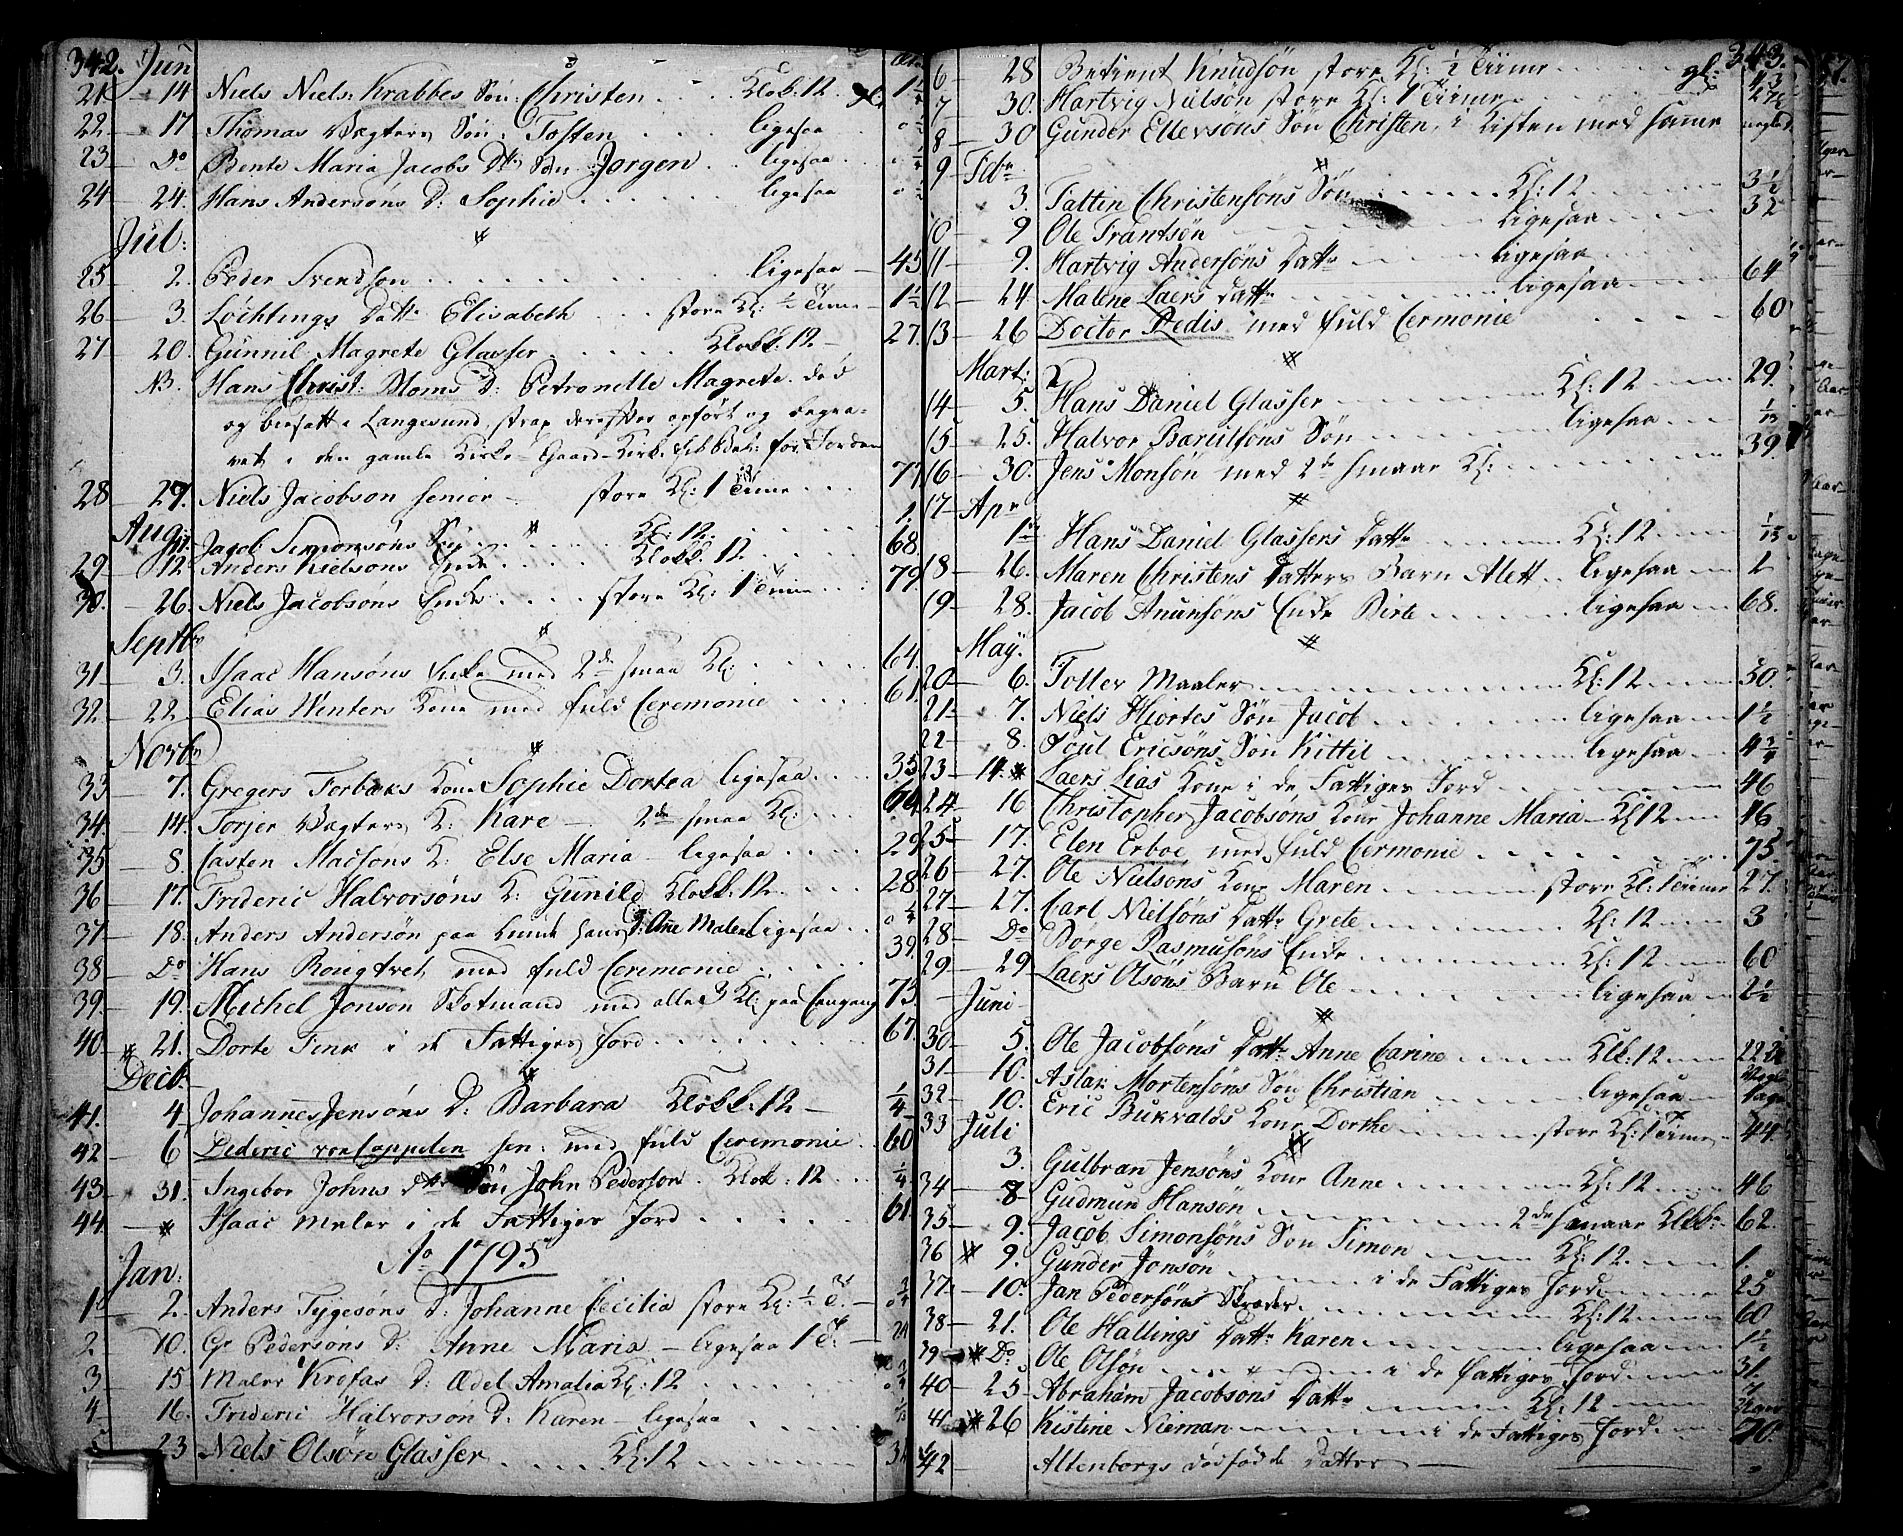 342. Jun
21 — 14 Niels Niels: Krabbes Søn: Christen .... Klok: 12 .. 1½
22 — 17 Thomas Vægters Søn: Tosten .... ligesaa
23 — Do Bente Maria Jacobs Dtr Søn Jørgen .. ligesaa
24 — 24. Hans Andersøns D: Sophie ..... ligesaa
Jul:
25 — 2. Peder Svendsøn ...... ligesaa — 45
26 — 3. Løchtings Dattr Elisabeth ... store Kl: ½ Time — 1½
27 — 20. Gunnil Magrete Glasser ..... Klokk: 12 — 27.
NB. Hans Christ: Moms D: Petronelle Magrete. død
og bisatt i Langesund, strax derefter opført og begra-
vet i den gamle Kirke-Gaard
28 — 29. Niels Jacobsøn senior — store Kl: 1 Time ... 77
Aug:
11. Jacob Simonsøns Søn ..... Kl: 12. ....
29 — 12. Anders Nielsøns Enke .... Klokk: 12 .... 68.
30. — 26. Niels Jacobsøns Enke .... store Kl: 1 Time ... 79.
Septbr
31 — 3. Isaac Hansøns Enke med 2de smaa Kl: ..... 64.
32 — 22 Elias Winters Kone med fuld Ceremonie .... 61.
Novbr
33 — 7. Gregers Forbaks Kone Sophie Dortea ligesaa .... 35
34 — 14. Torjer Vægters K: Kare — 2de smaa Kl: ...
35 — 8. Casten Madsøns K: Else Maria — ligesaa .... 29.
36 — 17. Frideric Halvorsøns K: Gunild Klokk: 12. .... 28
37 — 18. Anders Andersøn paa Lunde hans D: Ane Malen ligesaa ..
38 — Do Hans Rougtvet med fuld Ceremonie ...... 39.
39 — 19. Michel Jonsøn Skotmand med alle 3 Kl: paa Eengang 73.
40 — 21. Dorte Fink i de Fattiges Jord ........ 67.
Decbr
41. — 4 Johannes Jensøns D: Barbara Klokk: 12 — ¼
42 — 6 Dideric von Cappelen sen: med fuld Ceremonie .. 60
43. — 31. Ingebor Johns Dtr Søn John Pedersøn. Klok: 12 ... ¼
44. — Isaac Maler i de Fattiges Jord ..... 61.
Ao 1795
Jan:
1 — 2. Anders Tygesøns D: Johanne Cecilia store Kl: ½ T. —
2 — 10. Gr Pedersøns D: Anne Maria — ligesaa 1 T. —
3 — 15 Maler Krefas D: Ædel Amalia Kl: 12 .....
4 — 16. Frideric Halvorsøn D: Karen — ligesaa ....
5 — 23 Niels Olsøn Glasser .... Kl: 12 .....
343.
6 — 28 Betient Knudsøn store Kl: ½ Time ....
7 — 30. Hartvig Nielsøn store Kl: 1 Time ....
8 — 30 Gunder Ellevsøns Søn Christen, i Kisten med samme
9 — Febr
3. Fattin Christensøns Søn ..... Kl: 12 .... 3½
10 — 9 Ole Frantsøn ..... ligesaa .... 32
11 — 9. Hartvig Andersøns Dattr .... ligesaa ....
12 — 24 Malene Laers Dattr ..... ligesaa .... 64
13 — 26 Doctor Redis med fuld Cermonie .... 60
Mart:
14 — 5. Hans Daniel Glasser ..... Kl: 12 .... 29.
15 — 25. Halvor Barulføns Søn ..... ligesaa ....
16 — 30. Jens Monsøn med 2de smaae Kl: ..... 39
17 — Apr
1 Hans Daniel Glassers Dattr .... Kl: 12 ....
18 — 26. Maren Christens Datters Barn Alett .. ligesaa ..
19 — 28. Jacob Anunsøns Enke Birte .... ligesaa .. 68.
May.
20 — 6. Toller Maaler ....... Kl: 12 .... 50.
21 — 7. Niels Hiortes Søn Jacob ..... ligesaa .. 1½
22 — 8. Poul Ericsøns Søn Kittil ..... ligesaa .. 4¾
23 — 14. Laers Lias Kone i de Fattiges Jord ...... 46
24 — 16 Christopher Jacobsøns Kone Johanne Maria — Kl 12 .. 46
25 — 17. Elen Erboe med fuld Cermonie ...... 75.
26 — 27. Ole Nielsøns Kone Maren .... store Kl: 1 Time 27.
27 — 27. Carl Nielsøns Dattr Grete ...... Kl: 12 .. 3
28 — Do Børge Rasmusøns Enke ...... Kl: 12 .. 60
29 — 29 Laers Olsøns Barn Ole ...... ligesaa .. 2½
Juni
30 — 5. Ole Jacobsøns Dattr Anne Carine ... Klk: 12 ..
31 — 10. Aslak Mortensøns Søn Christian ... ligesaa ..
32 — 10. Eric Bukvalds Kone Dorthe .... store Kl: 1 Time 44.
33 Juli
3. Gulbran Jensøns Kone Anne .... Kl: 12 .. 46
34 — 8 Gudmun Hansøn ...... 2de smaae Klkkr 62.
35 — 9. Jacob Simonsøns Søn Simon .... Kl: 12. .. 1.
36 9. Gunder Jonsøn .... i de Fattiges Jord ... 25
37 — 10. Jan Pedersøns Skræder ..... Kl: 12 .. 60
38 — 21. Ole Hallings Dattr Karen ..... ligesaa .. 1½
39 Do. Ole Olsøn ..... i de Fattiges Jord .... 31.
40 — 25 Abraham Jacobsøns Dattr .... Kl: 12 ....
41 26 Kistine Nieman ...... i de Fattiges Jord .. 70.
42 — Altenborgs dødfødde Datter —